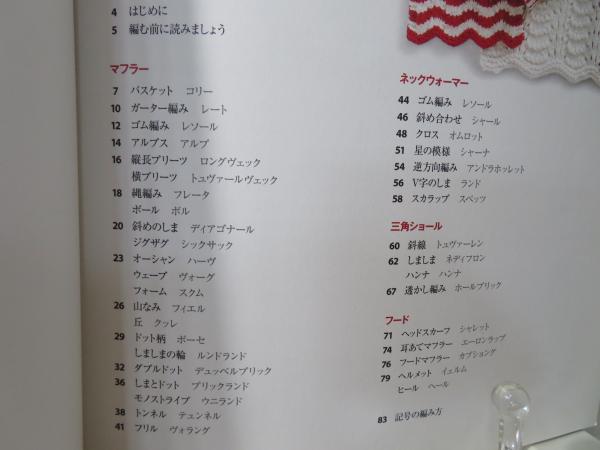 4 はじめに
5 編む前に読みましょう
マフラー
7 バスケット コリー
10 ガーター編み レート
12 ゴム編み レソール
14 アルプス アルプ
16 縦長プリーツ ロングヴェック
横プリーツ トュヴァールヴェック
18 縄編み フレータ
ボール ボル
20 斜めのしま ディアゴナール
ジグザグ シックサック
23 オーシャン ハーヴ
ウェーブ ヴォーグ
フォーム スクム
26 山なみ フィエル
丘 クッレ
29 ドット柄 ボーセ
しましまの輪 ルンドランド
32 ダブルドット デュッベルブリック
36 しまとドット ブリックランド
モノストライプ ウニランド
38 トンネル テュンネル
41 フリル ヴォラング
ネックウォーマー
44 ゴム編み レソール
46 斜め合わせ シャール
48 クロス オムロット
51 星の模様 シャーナ
54 逆方向編み アンドラホッレット
56 V字のしま ランド
58 スカラップ スペッツ
三角ショール
60 斜線 トュヴァーレン
62 しましま ネディフロン
ハンナ ハンナ
67 透かし編み ホールブリック
フード
71 ヘッドスカーフ シャレット
74 耳あてマフラー エーロンラップ
76 フードマフラー カプショング
79 ヘルメット イェルム
ヒール ヘール
83 記号の編み方